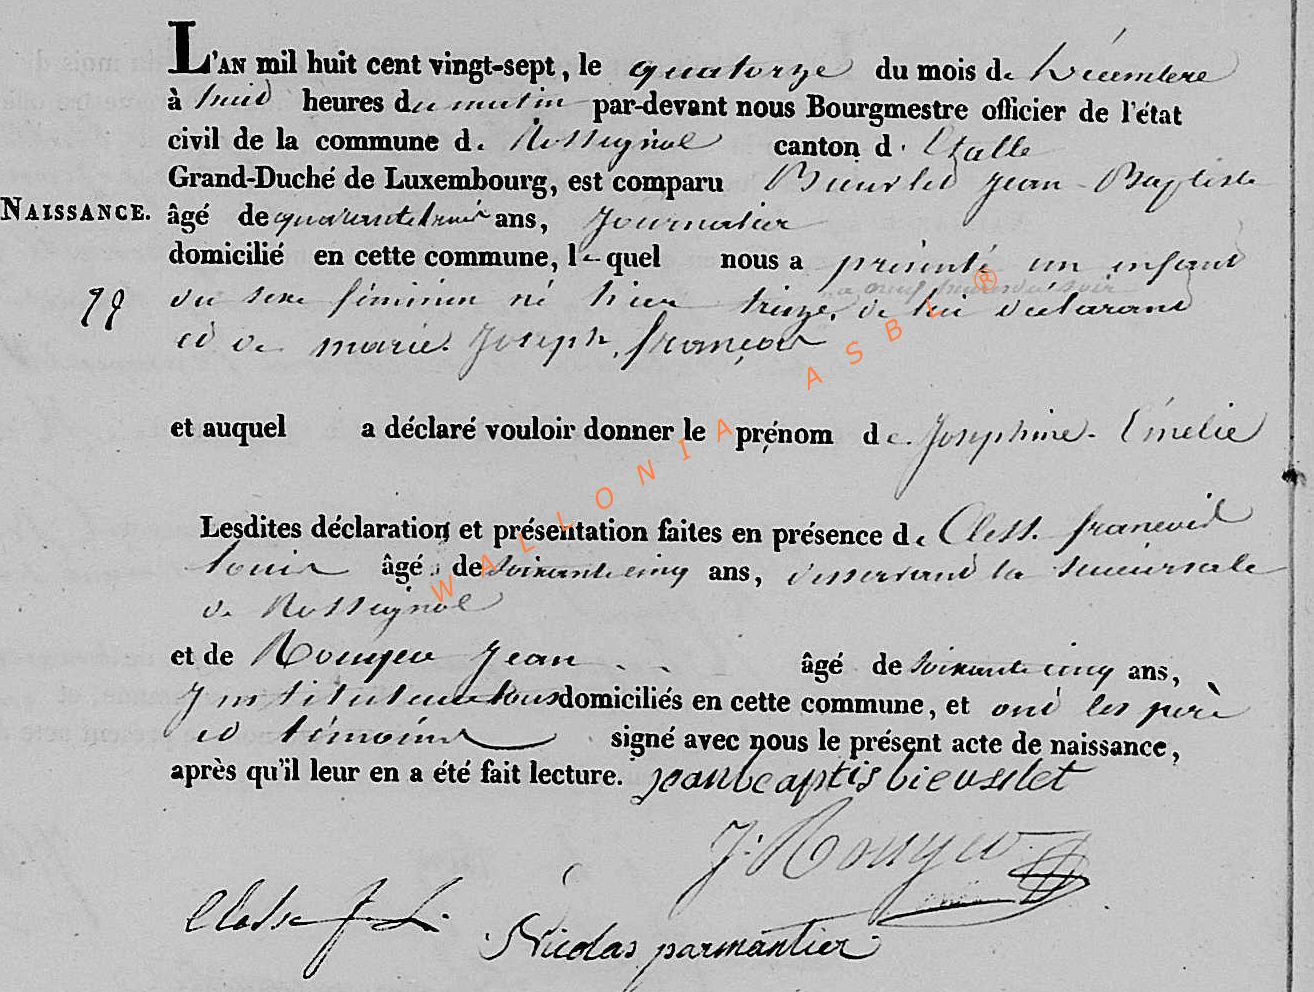 L'AN mil huit cent vingt-sept, le quatorze du mois de Décembre
à huid heures du matin par-devant nous Bourgmestre officier de l'état
civil de la commune de Rossignol canton d'Etalle
Grand-Duché de Luxembourg, est comparu Jean Baptiste
NAISSANCE. âgé de quarante trois ans, Journalier
domicilié en cette commune, lequel nous a présenté un enfand
a neuf heures du soir
99 du sexe féminin né hier treize, de lui declarand
ed de marie Joseph françois
et auquel a déclaré vouloir donner le prénom de Josephine Emélie
Lesdites déclaration et présentation faites en présence de
Louis âgé de soixante cinq ans, desservand la succursale
de Rossignol
et de Rougeu Jean âgé de soixante cinq ans,
Instituteur tous domiciliés en cette commune, et ond les père
ed témoins signé avec nous le présent acte de naissance,
après qu'il leur en a été fait lecture. jeanbaptis bieuslet
J. Rougeu
Classe f L.
Nicolas parmantier
WALLONIA ASBL ®